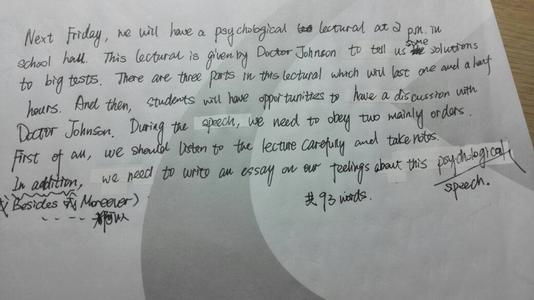 Next Friday, we will have a psychological lectural at 2 p.m. in
school hall. This lectural is given by Doctor Johnson to tell us some solutions
to big tests. There are three parts in this lectural which will last one and a half
hours. And then, students will have opportunities to have a discussion with
Doctor Johnson. During the speech, we need to obey two mainly orders.
First of all, we should listen to the lecture carefully and take notes.
In addition, we need to write an essay on our feelings about this psychological
speech.
Besides 或 Moreover)
共93 words.
都可以